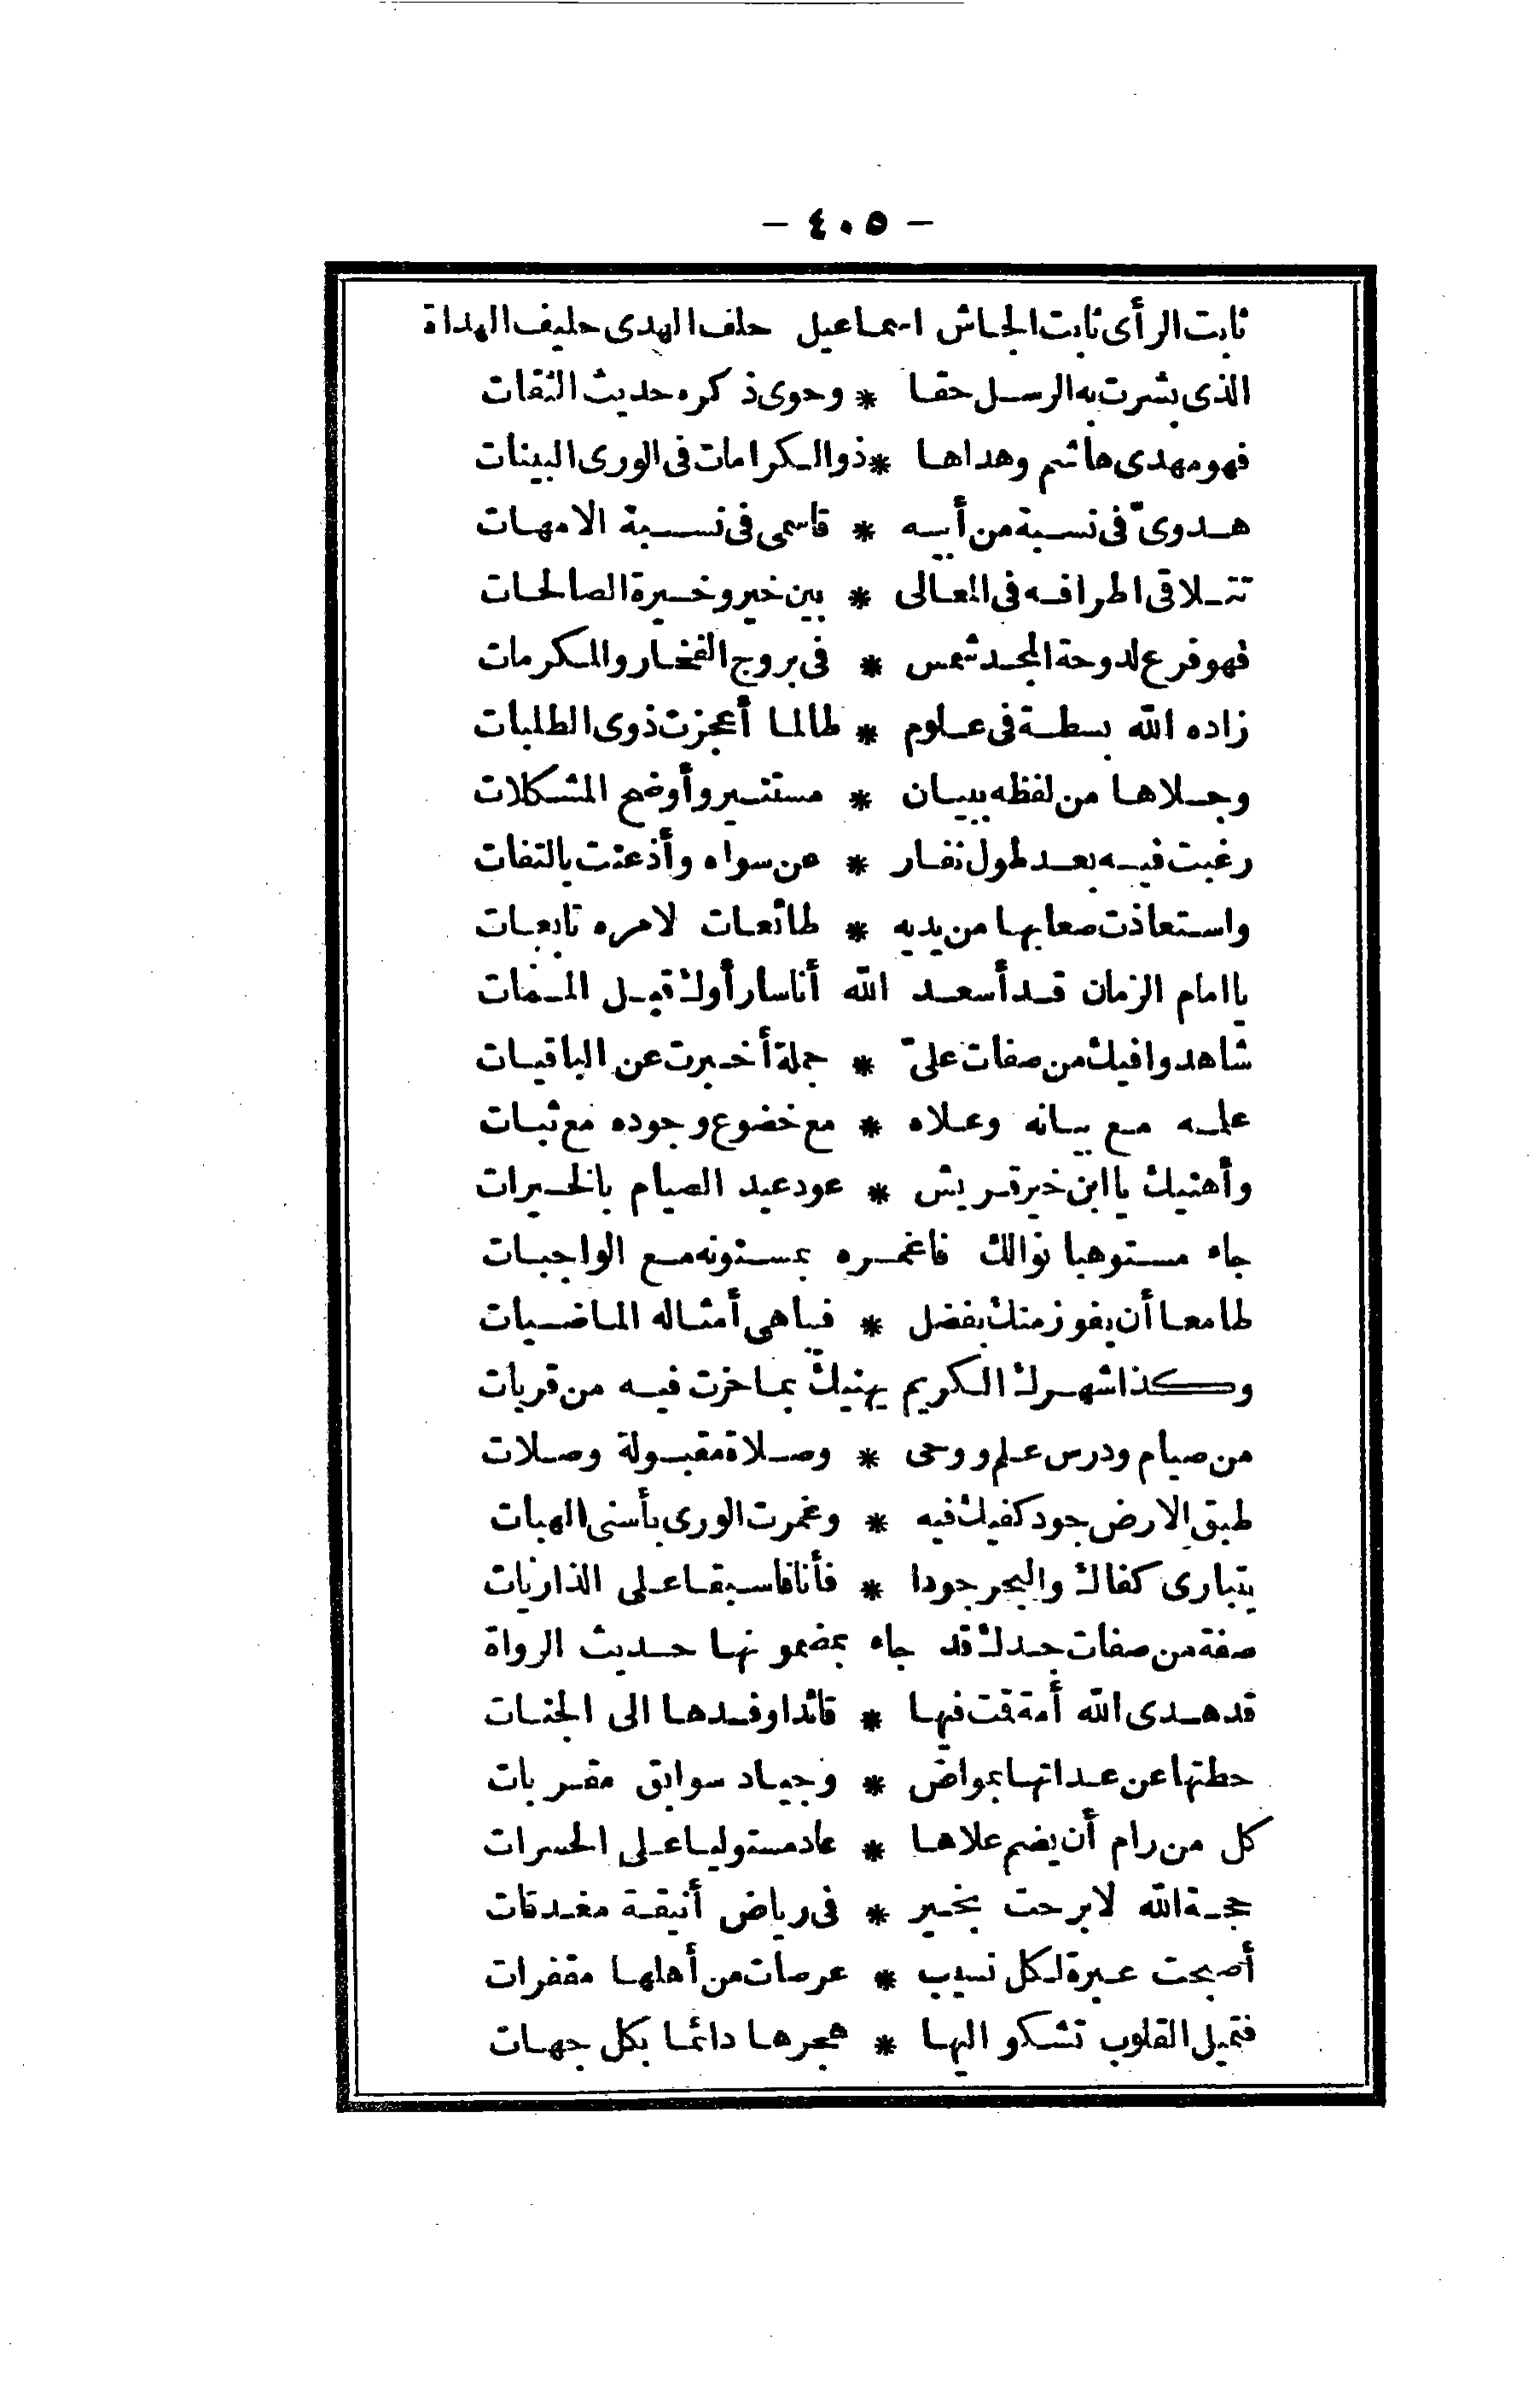 - ٤٠٥ -
ثابت الرأى ثابت الجاش اسماعيل حلف الهدى حليف الهداة
الذى بشرت به الرسل حقا * وحوى ذكره حديث الثقات
فهو مهدى هاشم وهداها * ذو الكرامات فى الورى البينات
هدوىّ فى نسبة من أبيه * قاسمى فى نسبة الامهات
تتلاقى اطرافه فى المعالى * بين خير وخيرة الصالحات
فهو فرع لدوحة المجد شمس * فى بروج الفخار والمكرمات
زاده الله بسطة فى علوم * طالما أعجزت ذوى الطلبات
وجلاها من لفظه ببيان * مستنير وأوضح المشكلات
رغبت فيه بعد طول نفار * عن سواه وأذعنت بالتفات
واستعاذت صعابها من يديه * طائعات لامره تابعات
يا امام الزمان قد أسعد الله أناسا رأوك قبل الممات
شاهدوا فيك من صفات علىّ * جملة أخبرت عن الباقيات
علمه مع بيانه وعلاه * مع خضوع وجوده مع ثبات
وأهنيك يا ابن خير قريش * عود عيد الصيام بالخيرات
جاء مستوهبا نوالك فاغمره بمسنونه مع الواجبات
طامعا أن يفوز منك بفضل * فيباهى أمثاله الماضيات
وكذا شهرك الكريم يهنيك بما حزت فيه من قربات
من صيام ودرس علم ووحى * وصلاة مقبولة وصلات
طبق الارض جود كفيك فيه * وغمرت الورى بأسنى الهبات
يتبارى كفاك والبحر جودا * فأنافا سبقا على الذاريات
صفة من صفات جدك قد جاء بمضمونها حديث الرواة
قد هدى الله أمة قمت فيها * قائدا وفدها الى الجنات
حطتها عن عداتها بمواض * وجياد سوابق مقربات
كل من رام أن يضم علاها * عاد مستوليا على الحسرات
حجة الله لا برحت بخير * فى رياض أنيقة مغدقات
أصبحت عبرة لكل نسيب * عرصات من أهلها مقفرات
فتميل القلوب تشكو اليها * هجرها دائما بكل جهات